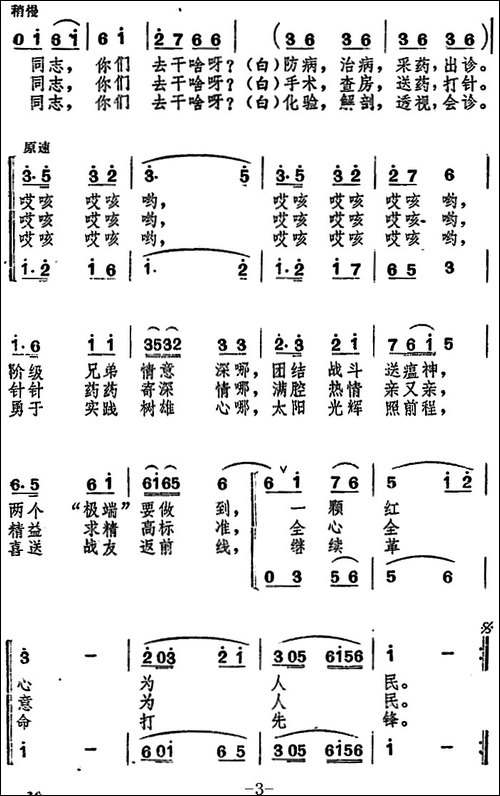 稍慢
0 i 6 i | 6 i | 2 7 6 6 | (3 6 3 6 | 3 6 3 6) |
同志， 你们 去干啥呀？(白)防病，治病，采药，出诊。
同志， 你们 去干啥呀？(白)手术，查房，送药，打针。
同志， 你们 去干啥呀？(白)化验，解剖，透视，会诊。
原速
3·5 3 2 | 3· 5 | 3·5 3 2 | 2 7 6
哎咳 哎咳 哟， 哎咳 哎咳 哟，
哎咳 哎咳 哟， 哎咳 哎咳 哟，
哎咳 哎咳 哟， 哎咳 哎咳 哟，
1·2 1 6 | 1· 2 | 1·2 1 7 | 6 5 3
1·6 1 1 | 3532 3 3 | 2·3 2 1 | 7 6 1 5
阶级 兄弟 情意 深哪，团结 战斗 送瘟神，
针针 药药 寄深 情哪，满腔 热情 亲又亲，
勇于 实践 树雄 心哪，太阳 光辉 照前程，
6·5 6 1 | 6165 6 | 6 1 7 6 | 5 1 2
两个 “极端” 要做 到， 一 颗 红
精益 求精 高标 准， 全 心 全
喜送 战友 返前 线， 继 续 革
0 3 5 6 | 5 6
3 - | 2 03 2 1 | 3 05 6156 | 1 -
心 为 人 民。
意 为 人 民。
命 打 先 锋。
1 - | 6 01 6 5 | 3 05 6156 | 1 -
-3-